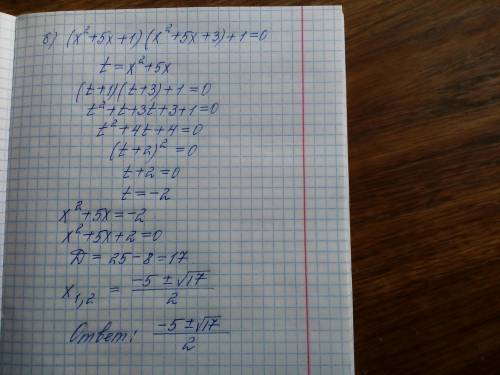 б) (x²+5x+1)(x²+5x+3)+1=0
t=x²+5x
(t+1)(t+3)+1=0
t²+t+3t+3+1=0
t²+4t+4=0
(t+2)²=0
t+2=0
t=-2
x²+5x=-2
x²+5x+2=0
D=25-8=17
x₁,₂ = (-5±√17)/2
Ответ: (-5±√17)/2